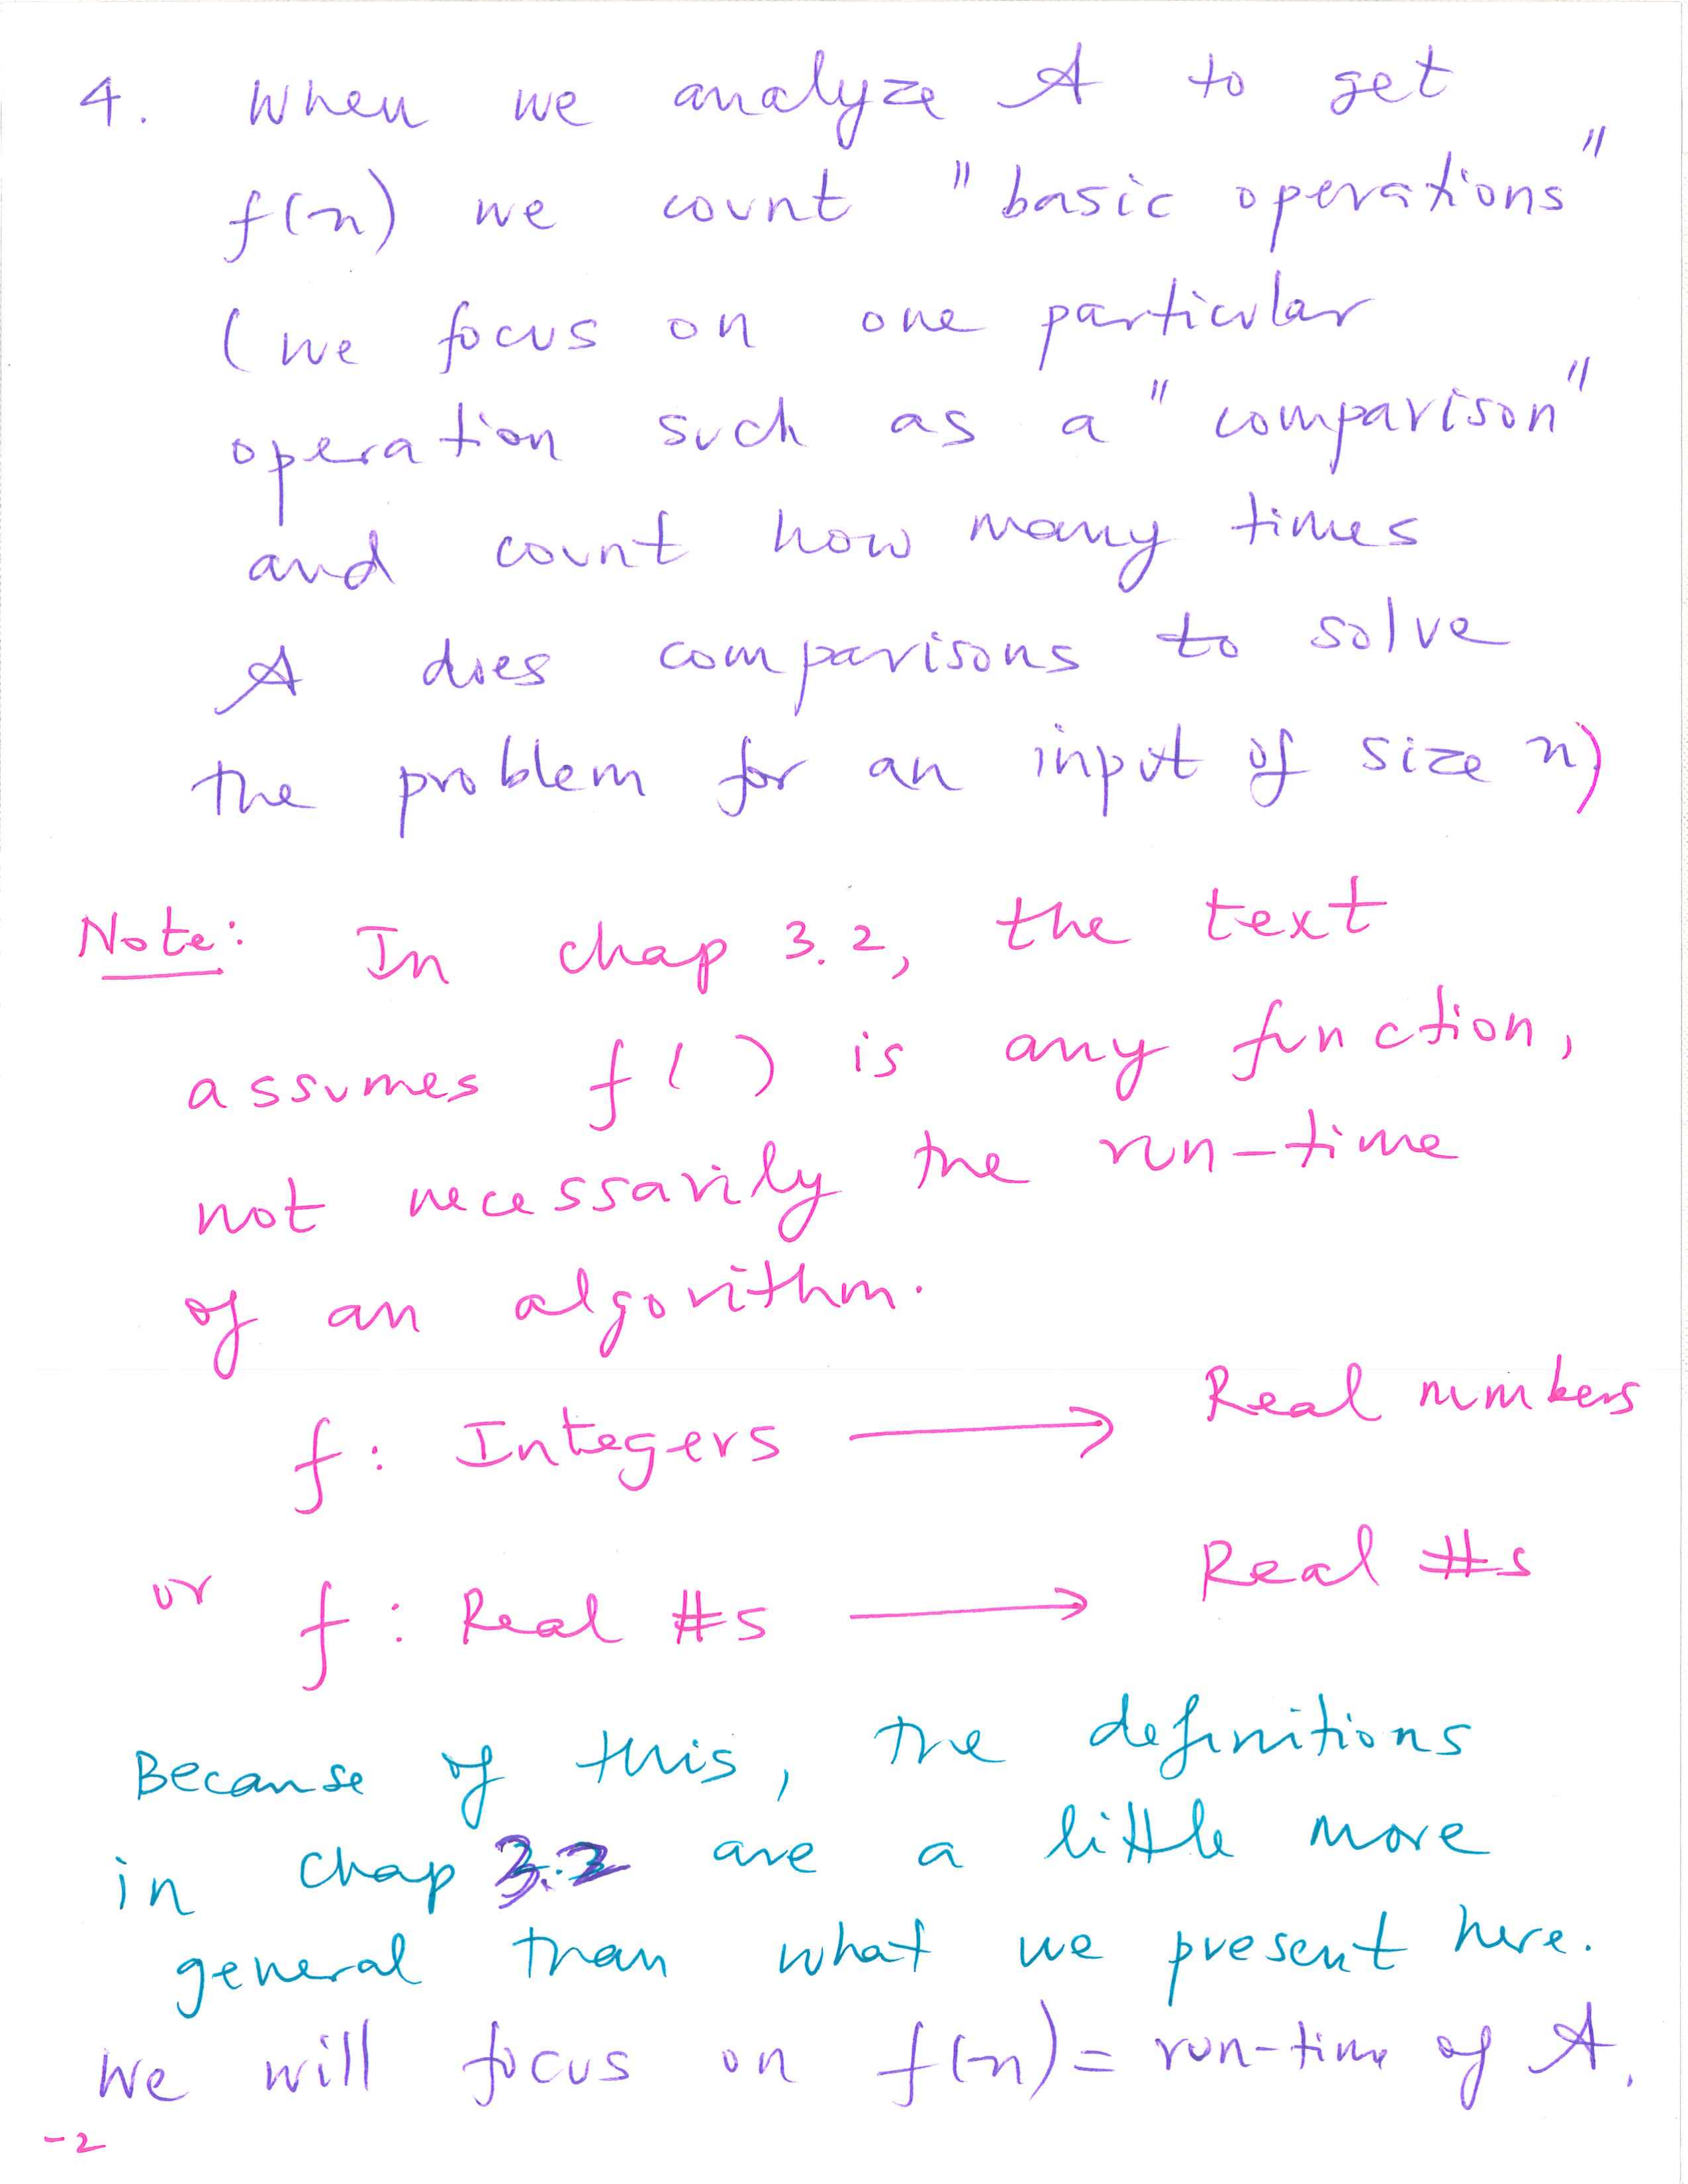 4. When we analyze A to get
f(n) we count "basic operations"
(we focus on one particular
operation such as a "comparison"
and count how many times
A does comparisons to solve
the problem for an input of size n)
Note: In chap 3.2, the text
assumes f( ) is any function,
not necessarily the run-time
of an algorithm.
f: Integers ⟶ Real numbers
or f: Real #s ⟶ Real #s
Because of this, the definitions
in chap 3.2 are a little more
general than what we present here.
We will focus on f(n) = run-time of A.
-2